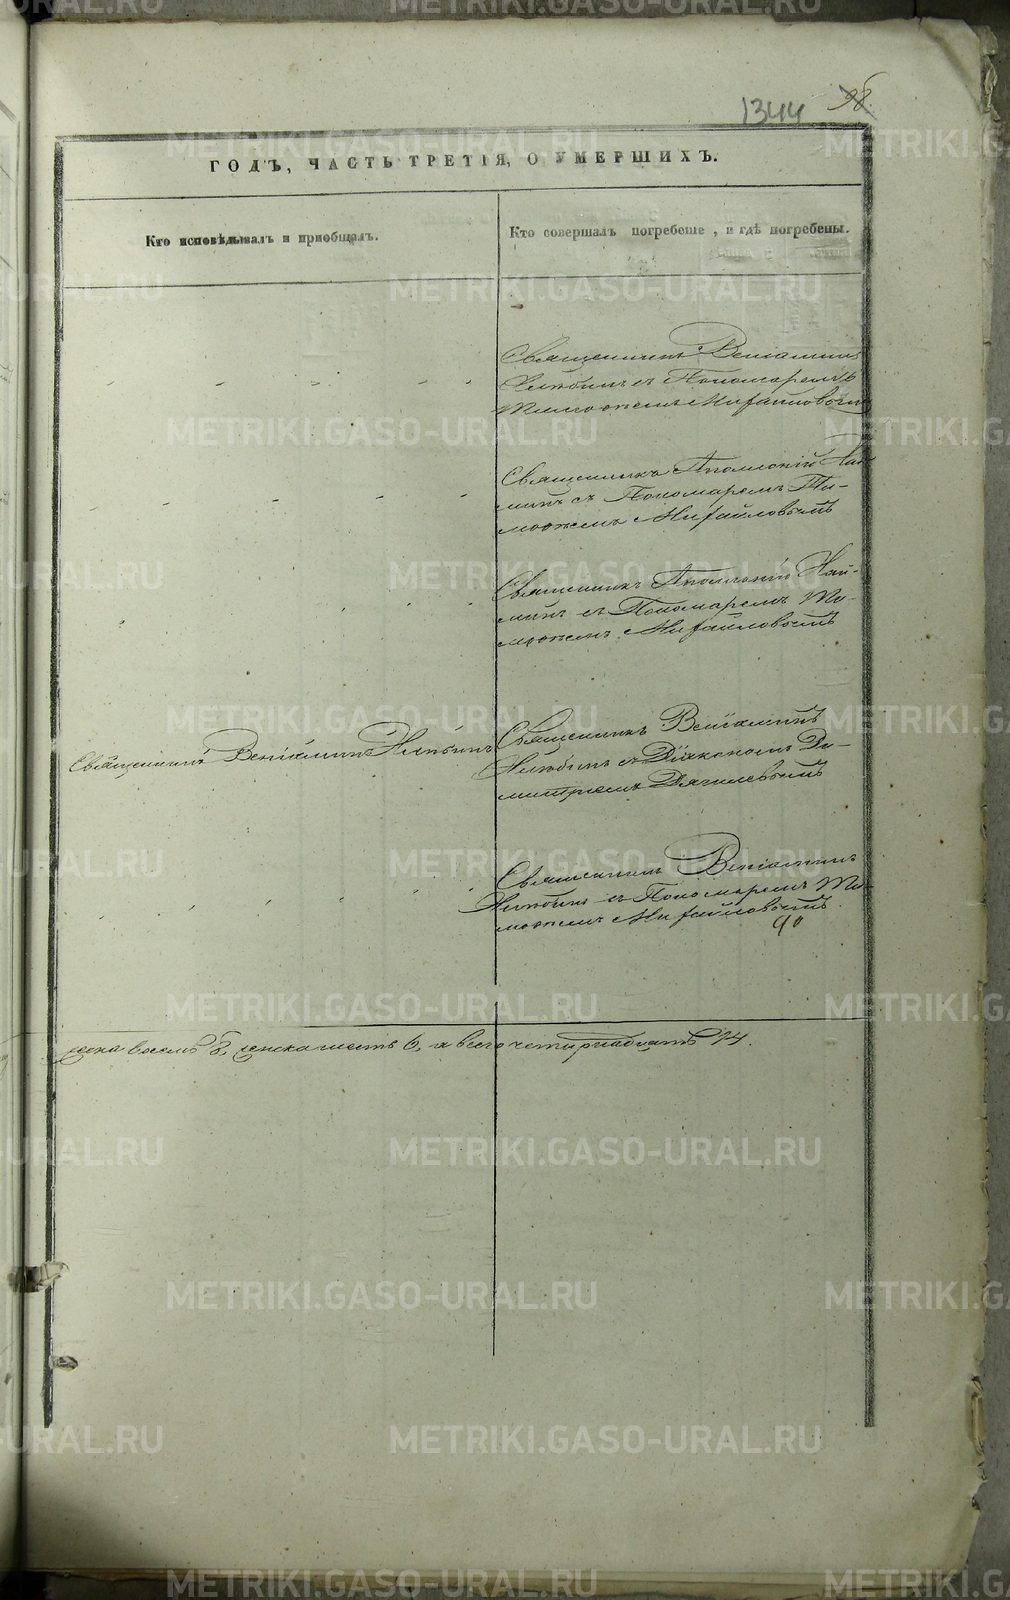 1344 98.
ГОДЪ, ЧАСТЬ ТРЕТІЯ, О УМЕРШИХЪ.
Кто исповѣдывалъ и пріобщалъ.
Кто совершалъ погребеніе, и гдѣ погребены.
Священникъ Веніаминъ
съ Пономаремъ
Тимофеемъ Михайловымъ
Священникъ Аполлоній Най-
минъ съ Пономаремъ Ти-
мофеемъ Михайловымъ
Священникъ Аполлоній Най-
минъ съ Пономаремъ Ти-
мофеемъ Михайловымъ
Священникъ Веніаминъ
Священникъ Веніаминъ
съ Діакономъ Ди-
митріемъ Дягилевымъ
Священникъ Веніаминъ
съ Пономаремъ Ти-
мофеемъ Михайловымъ.
90
пола восемь 8, женска шесть 6, а всего четырнадцать 14.
METRIKI.GASO-URAL.RU